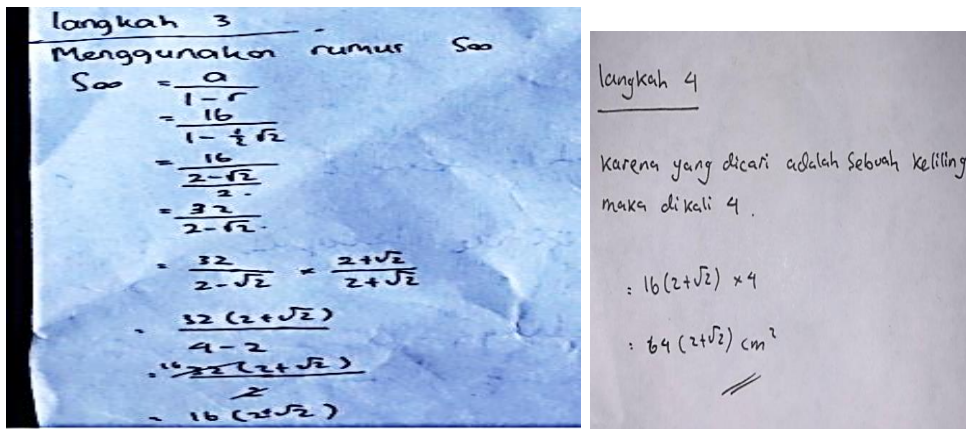 langkah 3
Menggunakan rumus S∞
S∞ = a / 1 - r
= 16 / 1 - 1/2 √2
= 16 / (2 - √2 / 2)
= 32 / 2 - √2
= 32 / 2 - √2 × 2 + √2 / 2 + √2
= 32 (2 + √2) / 4 - 2
= 16 32 (2 + √2) / 2
= 16 (2 + √2)
langkah 4
Karena yang dicari adalah sebuah keliling
maka dikali 4.
: 16 (2 + √2) × 4
: 64 (2 + √2) cm²